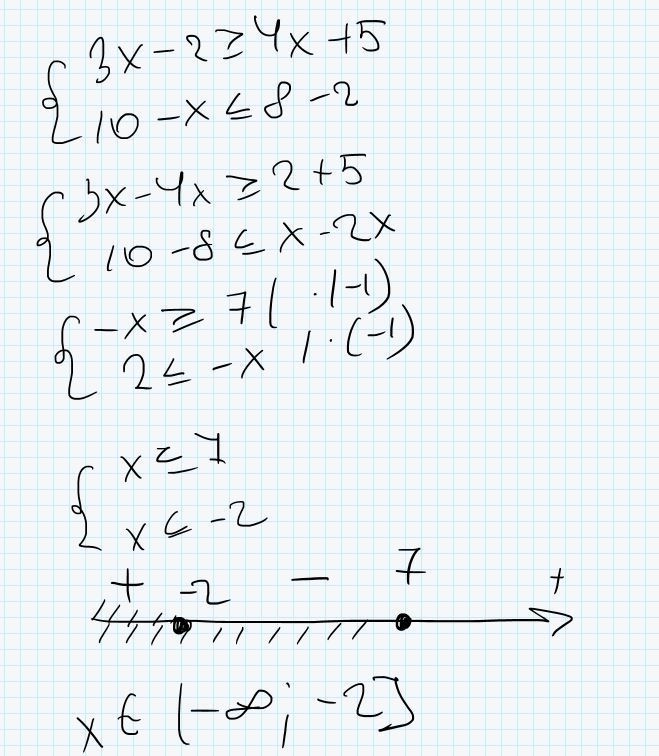 { 3x - 2 ≥ 4x + 5
10 - x ≤ 8 - 2
{ 3x - 4x ≥ 2 + 5
10 - 8 ≤ x - 2x
{ -x ≥ 7 | · (-1)
2 ≤ -x | · (-1)
{ x ≤ 7
x ≤ -2
+ -2 — 7 +
x ∈ (-∞; -2]